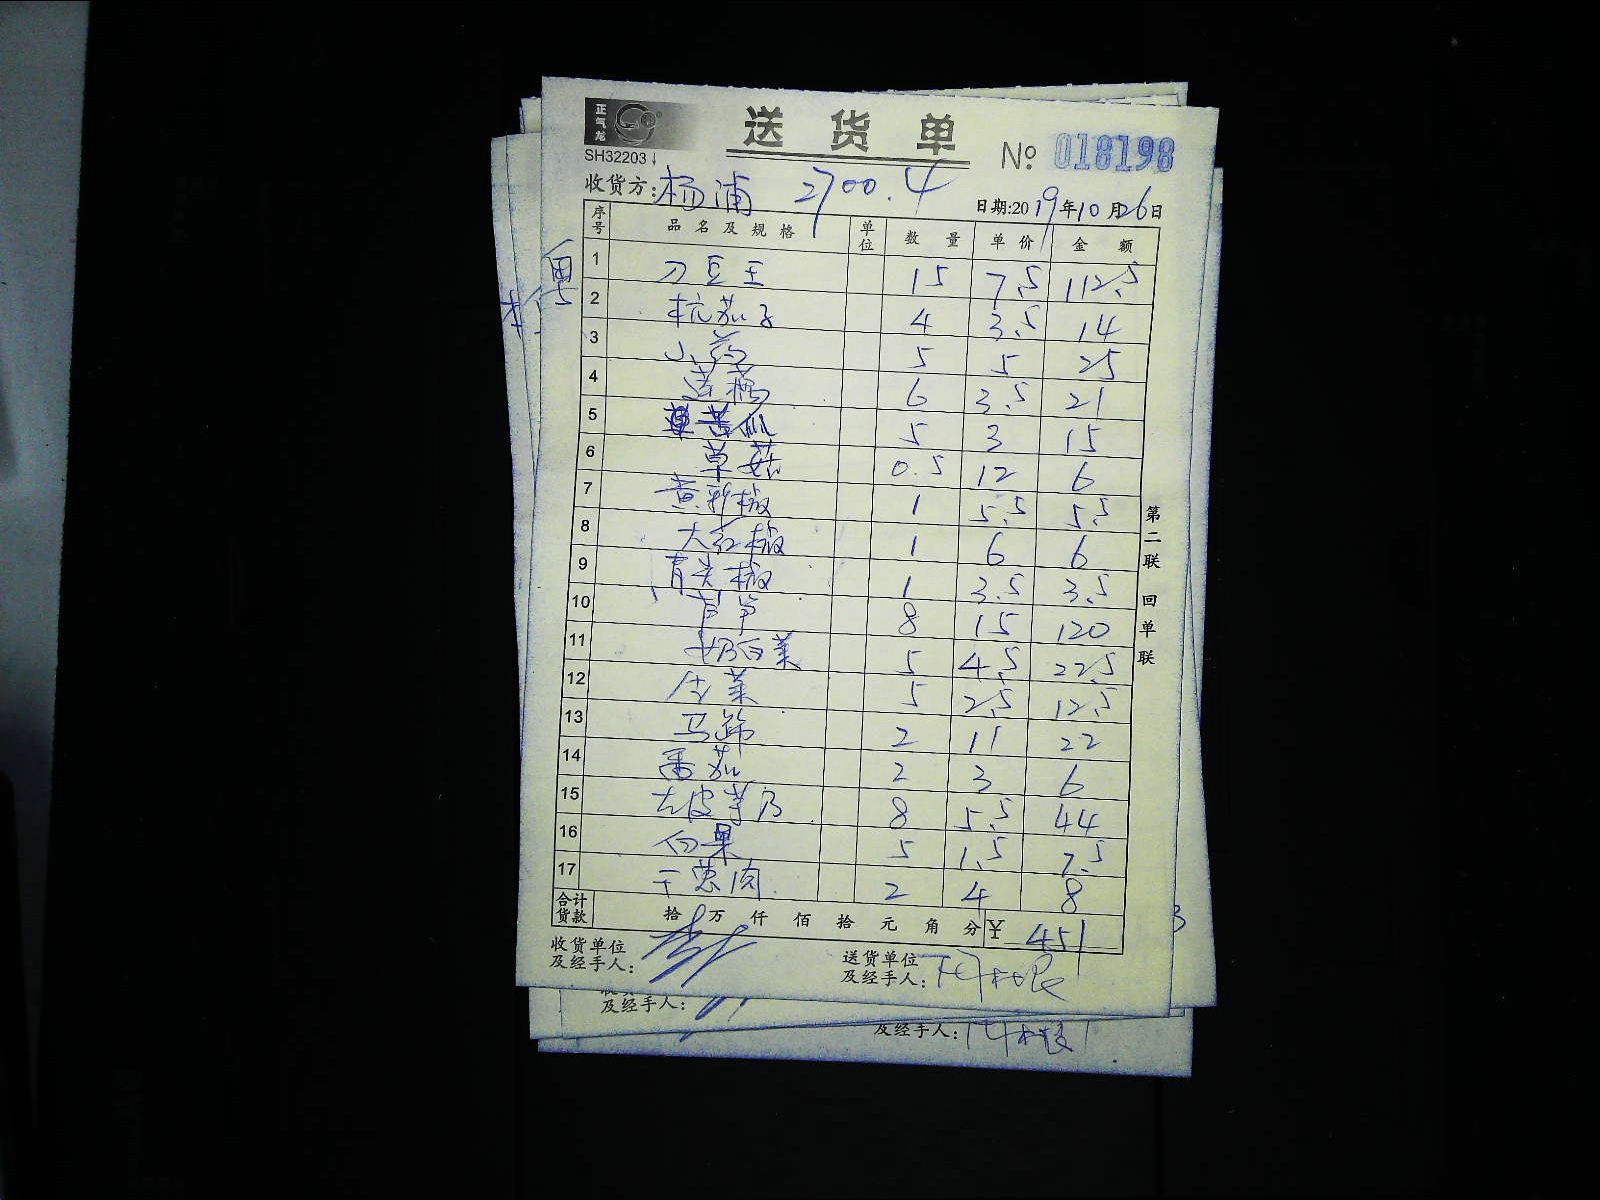 正气龙
送货单
SH32203↓
№ 018198
收货方: 杨浦 2700.4
日期:2019年10月26日
序号 品名及规格 单位 数量 单价 金额
1 刀豆王 15 7.5 112.5
2 杭茄子 4 3.5 14
3 山药 5 5 25
4 莲藕 6 3.5 21
5 苦瓜 5 3 15
6 草菇 0.5 12 6
7 黄彩椒 1 5.5 5.5
8 大红椒 1 6 6
9 青尖椒 1 3.5 3.5
10 芦笋 8 15 120
11 奶白菜 5 4.5 22.5
12 生菜 5 2.5 12.5
13 马蹄 2 11 22
14 番茄 2 3 6
15 去皮芋艿 8 5.5 44
16 白果 5 1.5 7.5
17 干葱肉 2 4 8
合计货款 拾 万 仟 佰 拾 元 角 分 ¥ 451
收货单位及经手人:
送货单位及经手人:
第二联 回单联
及经手人:
及经手人: